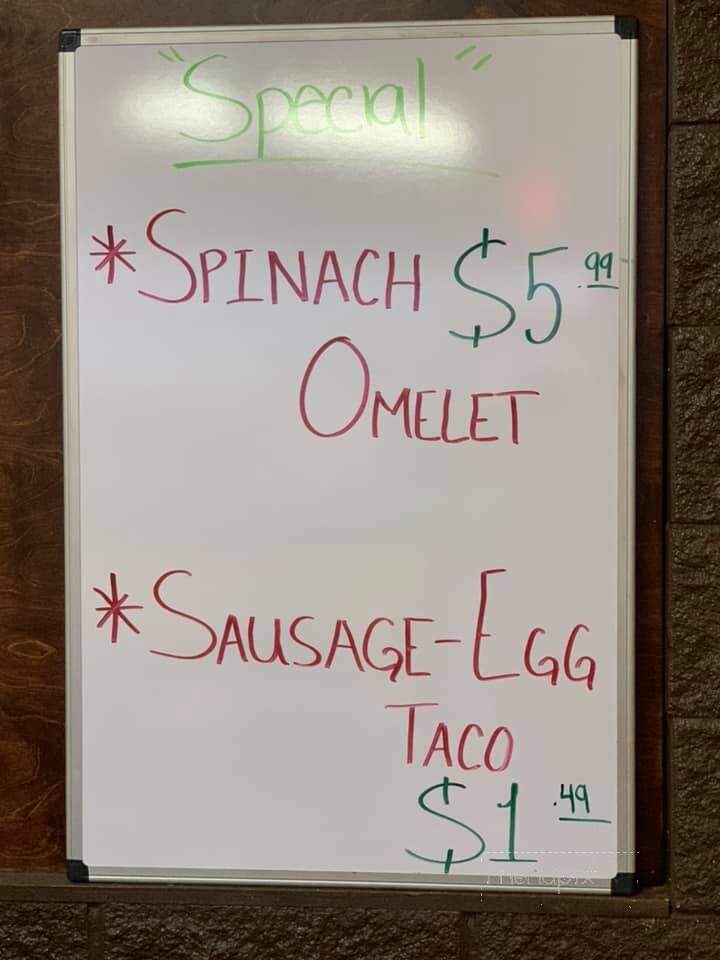 "Special"
*SPINACH $5.99
OMELET
*SAUSAGE-EGG
TACO
$1.49
menupix